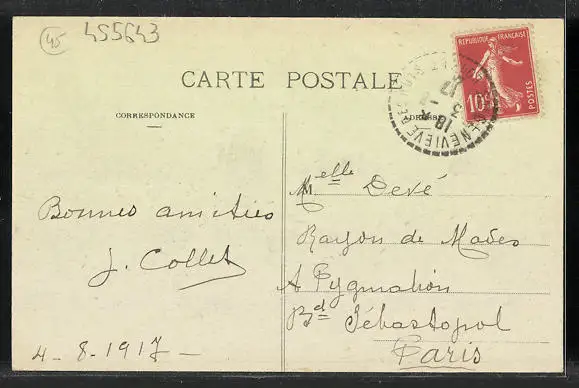 45
455643
CARTE POSTALE
CORRESPONDANCE
ADRESSE
RÉPUBLIQUE FRANÇAISE
10c
POSTES
GENEVIÈVE DES BOIS
Bonnes amitiés
J. Collet
4 - 8 - 1917 -
Melle Devé
Rayon de Modes
A Pygmalion
Bd Sébastopol
Paris